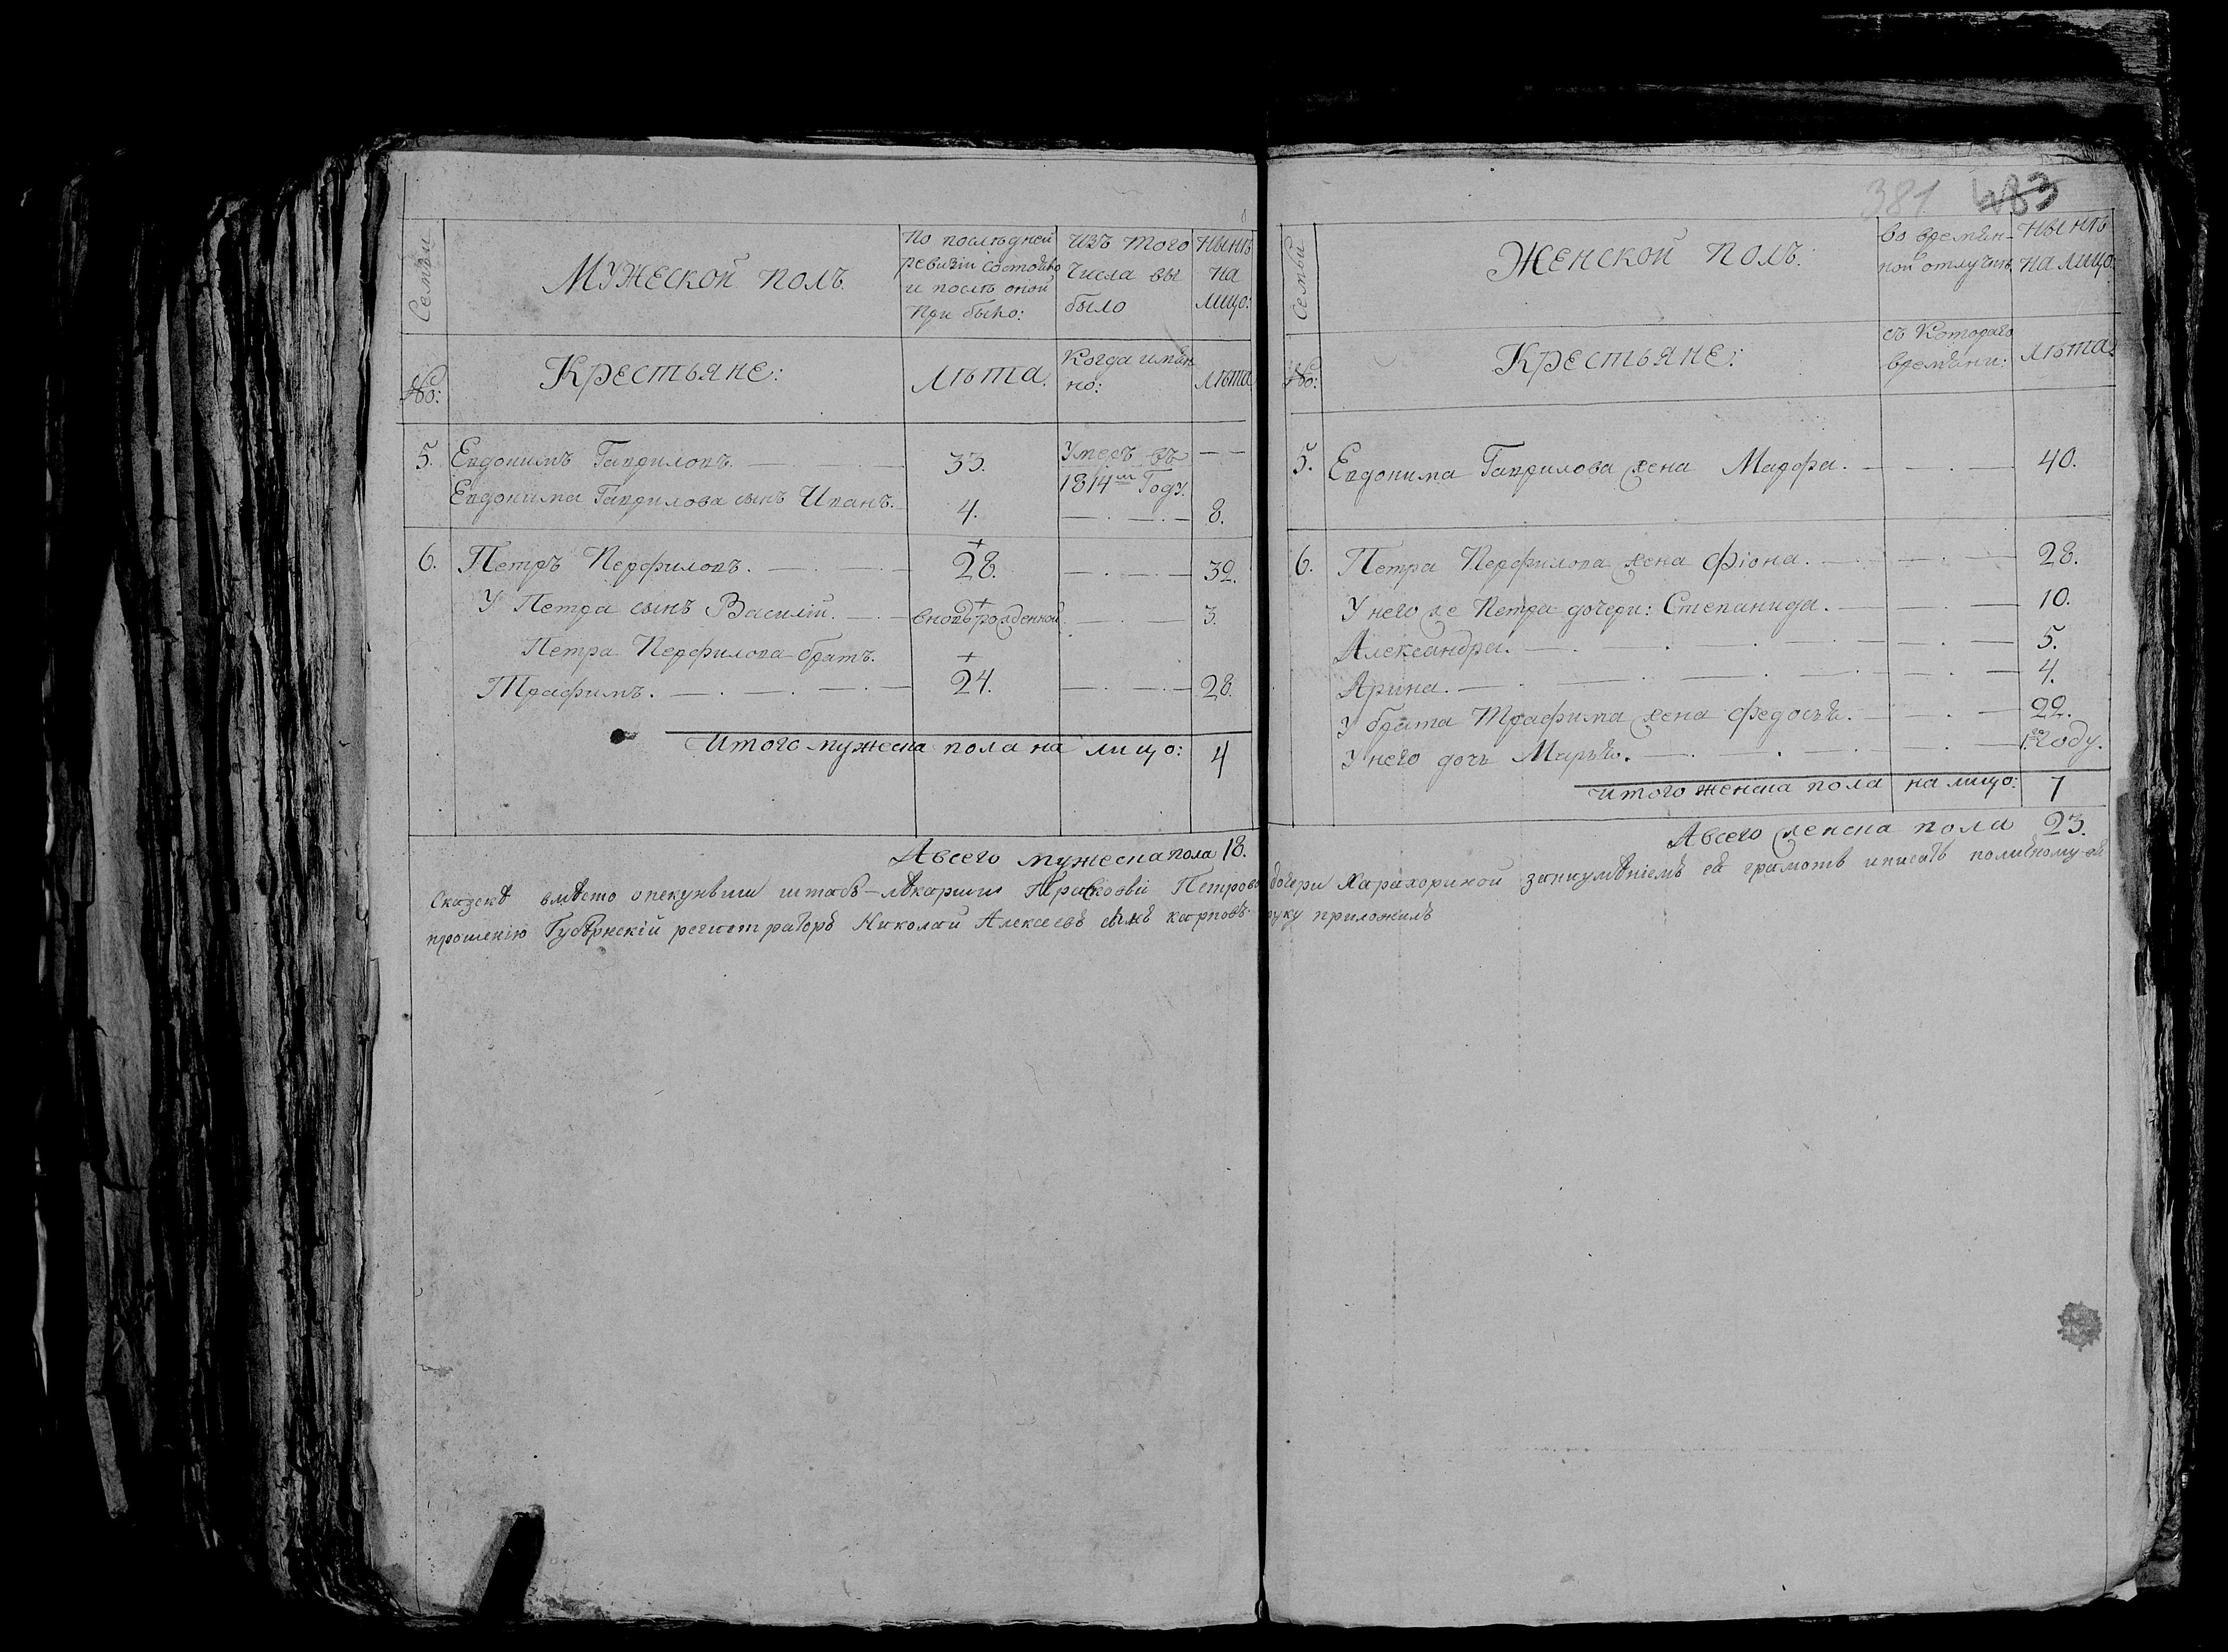 Семьи
Мужеской полъ.
По последней
ревизіи состояло
и послѣ оной
при было:
изъ того
числа вы
было
Нынѣ
на
лицо:
№:
Крестьяне:
Лѣта.
Когда имян
но:
Лѣта
5. Евдокимъ Гавриловъ. 33. Умеръ въ 1814м Году.
Евдокима Гаврилова сынъ Иванъ. 4. 8.
6. Петръ Перфиловъ. 28. 32.
У Петра сынъ Василій. вновь рожденной 3.
Петра Перфилова братъ.
Трафимъ. 24. 28.
Итого мужеска пола на лицо: 4
Авсего мужеска пола 18.
381 483
Семьи
Женской полъ:
во времян-
ной отлучкѣ
Нынѣ
на лицо:
№:
Крестьяне:
съ Котораго
времяни:
лѣта:
5. Евдокима Гаврилова жена Марфа. 40.
6. Петра Перфилова жена Фіона. 28.
У него же Петра дочери: Степанида. 10.
Александра. 5.
Арина. 4.
У брата Трафима жена Федосья. 22.
У него дочь Марья. 1го году.
Итого женска пола на лицо: 7
Авсего женска пола 23.
вмѣсто опекунши штабъ-лѣкарши Прасковіи Петровой дочери Карахориной занеумѣніемъ еѣ грамотѣ иписать
прошенію Губернскій регистраторъ Николай Алексѣевъ сынъ карповъ руку приложилъ